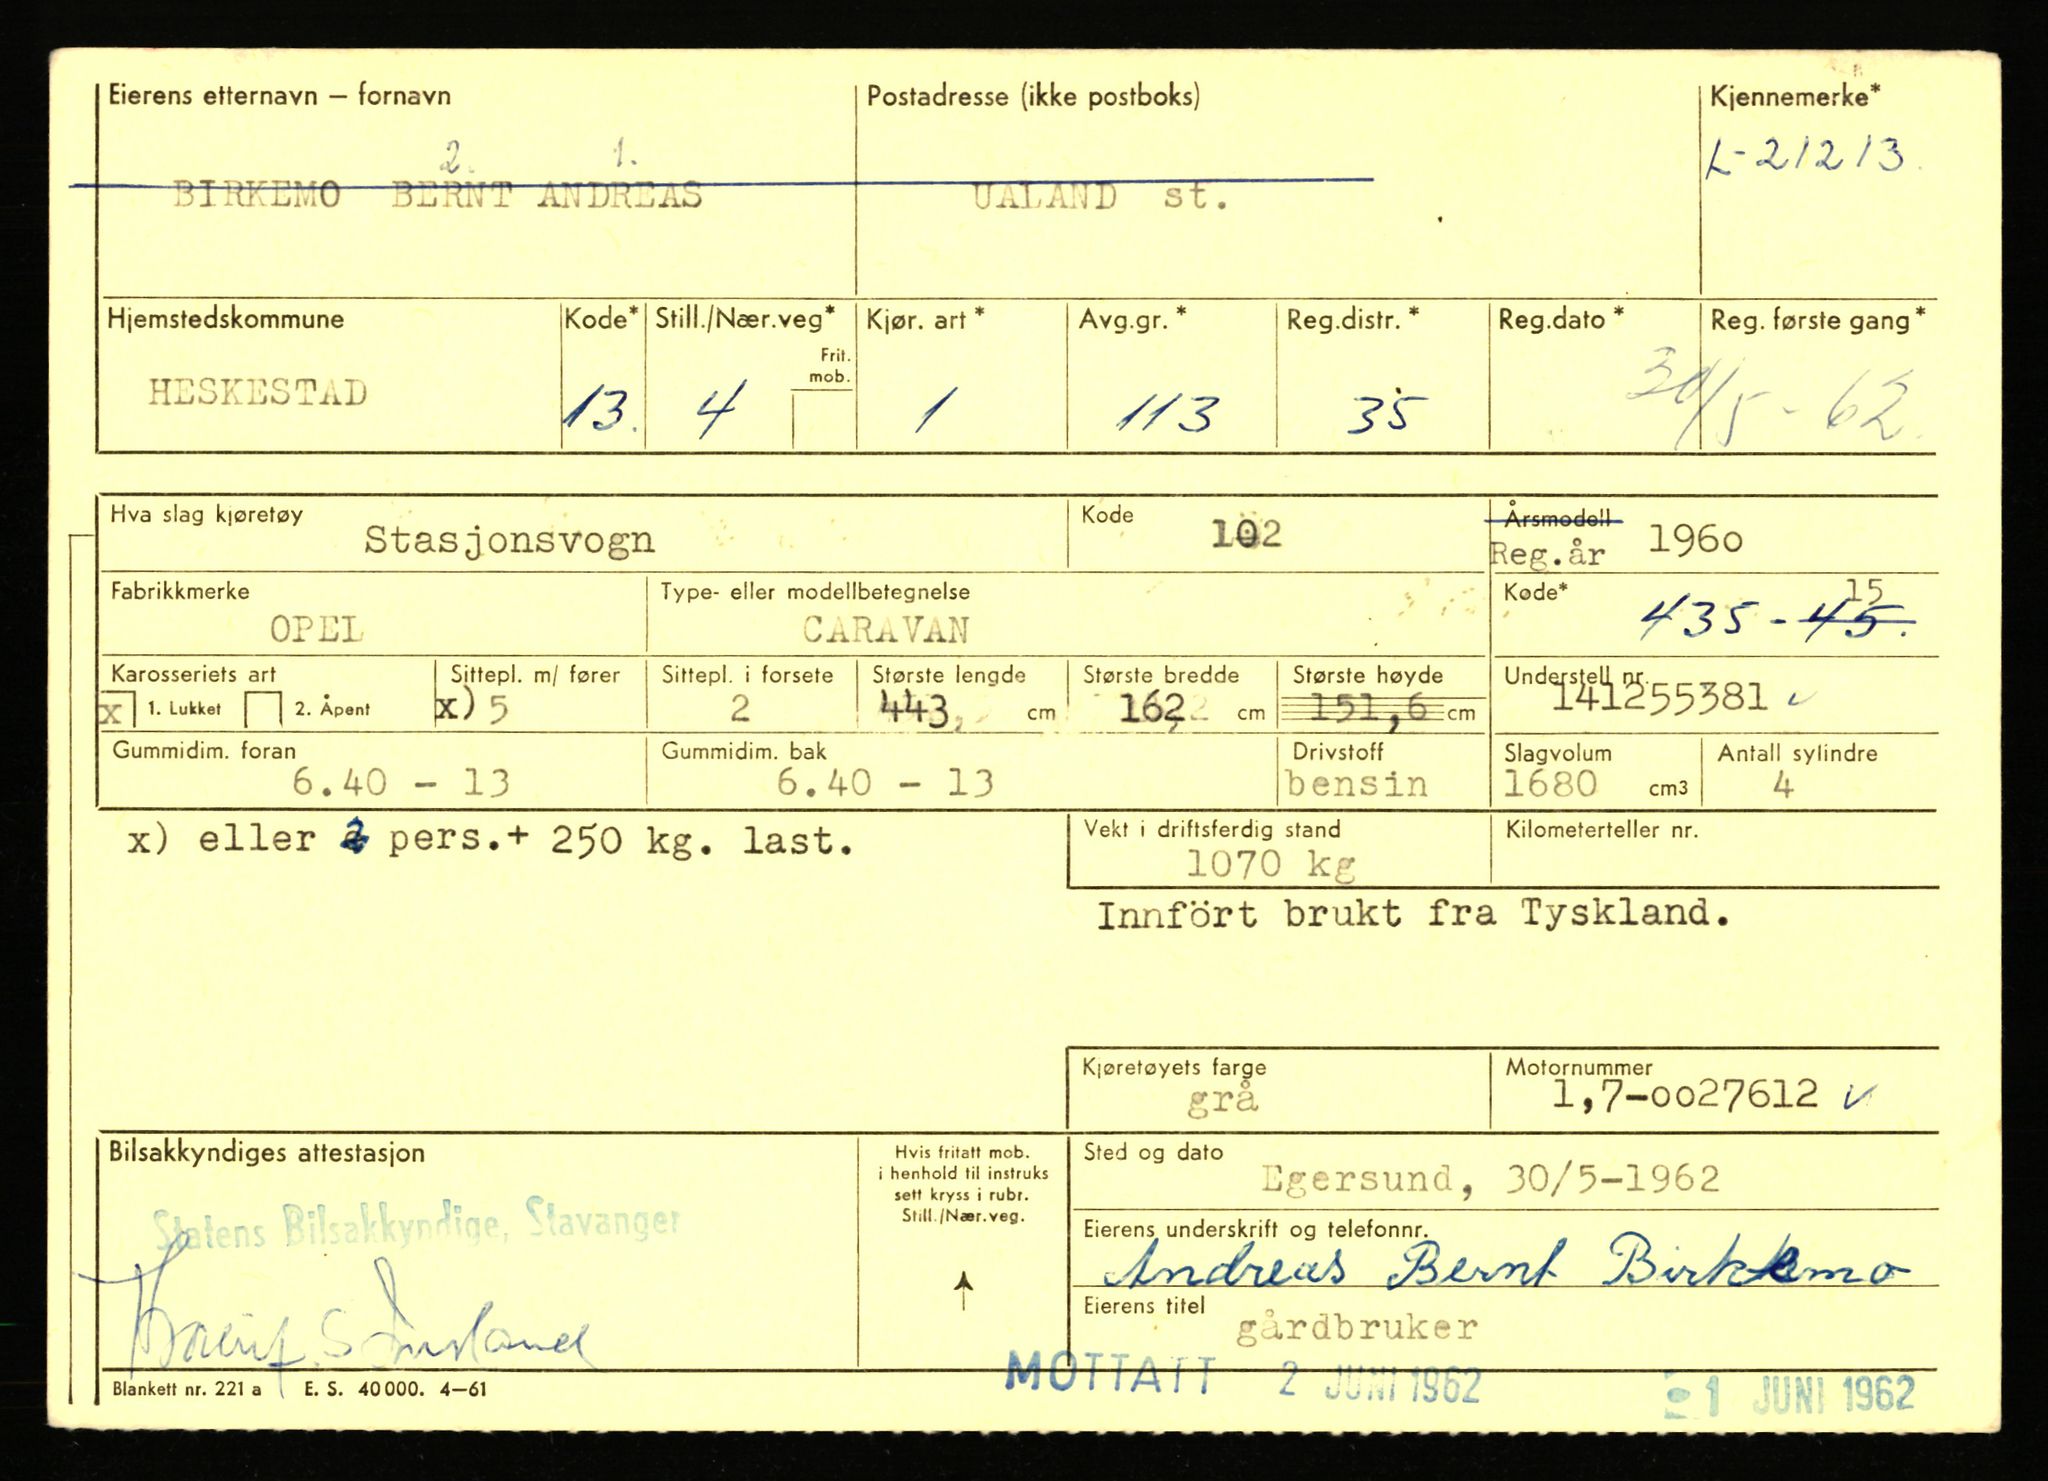 Eierens etternavn – fornavn
Postadresse (ikke postboks)
Kjennemerke*
2. 1.
BIRKEMO BERNT ANDREAS
UALAND st.
L-21213.
Hjemstedskommune
Kode*
Still./Nær.veg*
Frit. mob.
Kjør. art *
Avg.gr. *
Reg.distr. *
Reg.dato *
Reg. første gang*
HESKESTAD
13.
4
1
113
35
30/5-62.
Hva slag kjøretøy
Stasjonsvogn
Kode
102
Årsmodell
Reg.år 1960
Fabrikkmerke
OPEL
Type- eller modellbetegnelse
CARAVAN
Kode*
15
435-45.
Karosseriets art
x 1. Lukket 2. Åpent
Sittepl. m/ fører
x) 5
Sittepl. i forsete
2
Største lengde
443, cm
Største bredde
162, cm
Største høyde
151,6 cm
Understell nr.
141255381 ✓
Gummidim. foran
6.40 - 13
Gummidim. bak
6.40 - 13
Drivstoff
bensin
Slagvolum
1680 cm3
Antall sylindre
4
x) eller 2 pers.+ 250 kg. last.
Vekt i driftsferdig stand
1070 kg
Kilometerteller nr.
Innfört brukt fra Tyskland.
Kjøretøyets farge
grå
Motornummer
1,7-0027612 ✓
Bilsakkyndiges attestasjon
Statens Bilsakkyndige, Stavanger
Hvis fritatt mob.
i henhold til instruks
sett kryss i rubr.
Still./Nær.veg.
Sted og dato
Egersund, 30/5-1962
Eierens underskrift og telefonnr.
Andreas Bernt Birkemo
Eierens titel
gårdbruker
Blankett nr. 221 a E. S. 40000. 4–61
MOTTATT 2 JUNI 1962
1 JUNI 1962